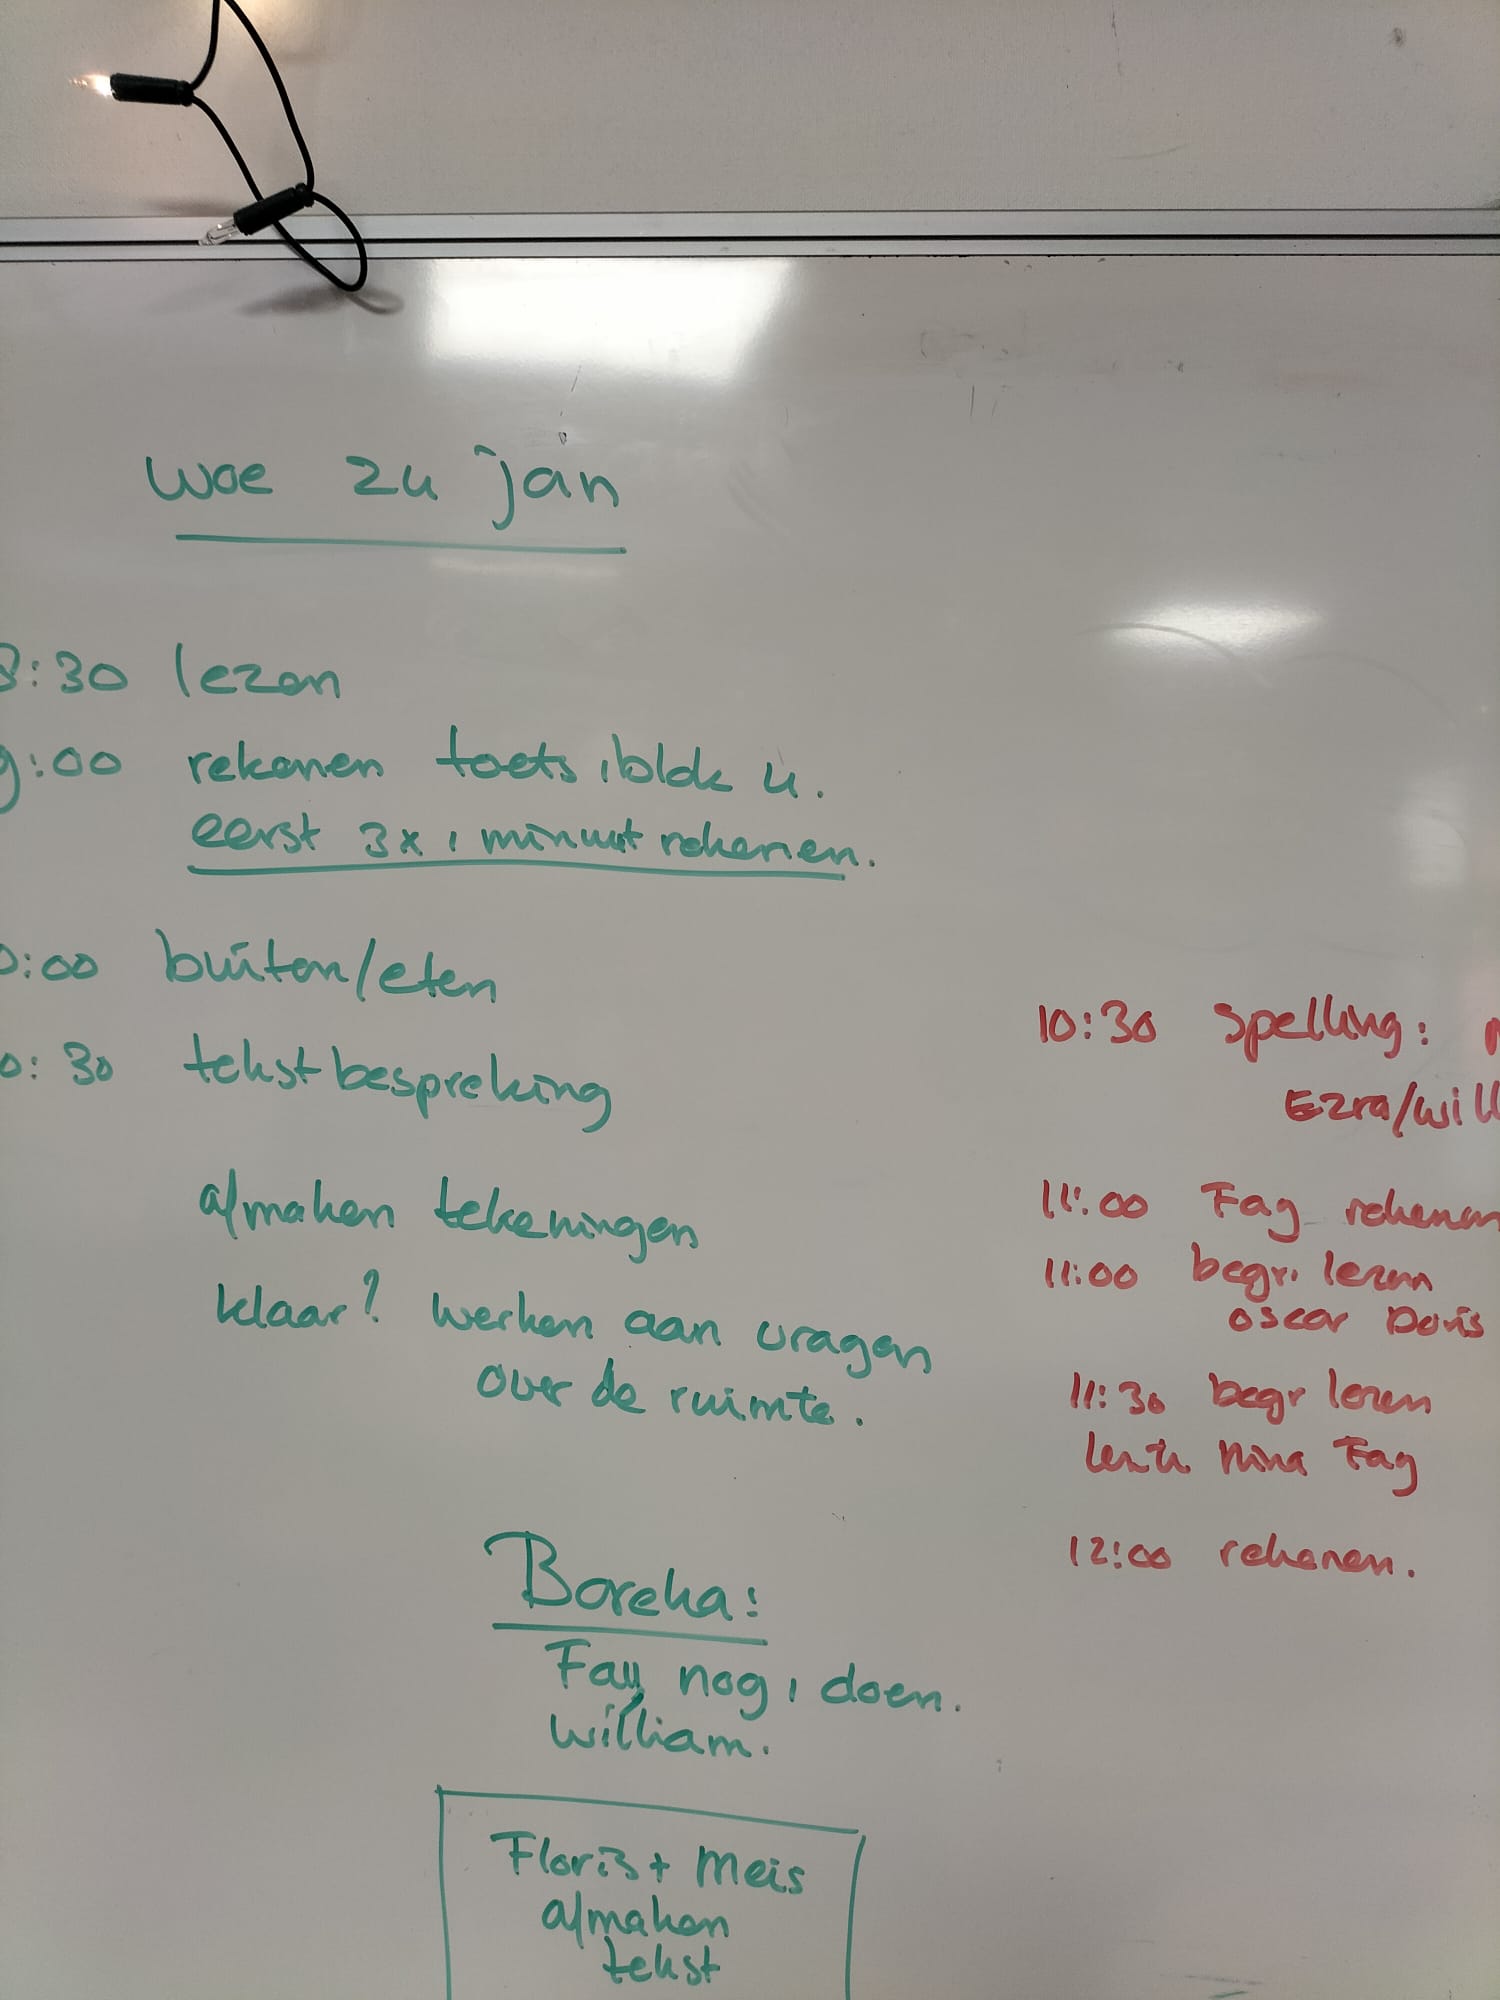 woe 24 jan
8:30 lezen
9:00 rekenen toets, blok 4.
eerst 3x 1 minuut rekenen.
0:00 buiten/eten
0:30 tekstbespreking
afmaken tekeningen
klaar? werken aan vragen
over de ruimte.
Boreka:
Fay nog 1 doen.
william.
Floris + Meis
afmaken
tekst
10:30 Spelling:
Ezra/will
11:00 Fay rekenen
11:00 begr. lezen
oscar Doris
11:30 begr lezen
Nina Fay
12:00 rekenen.